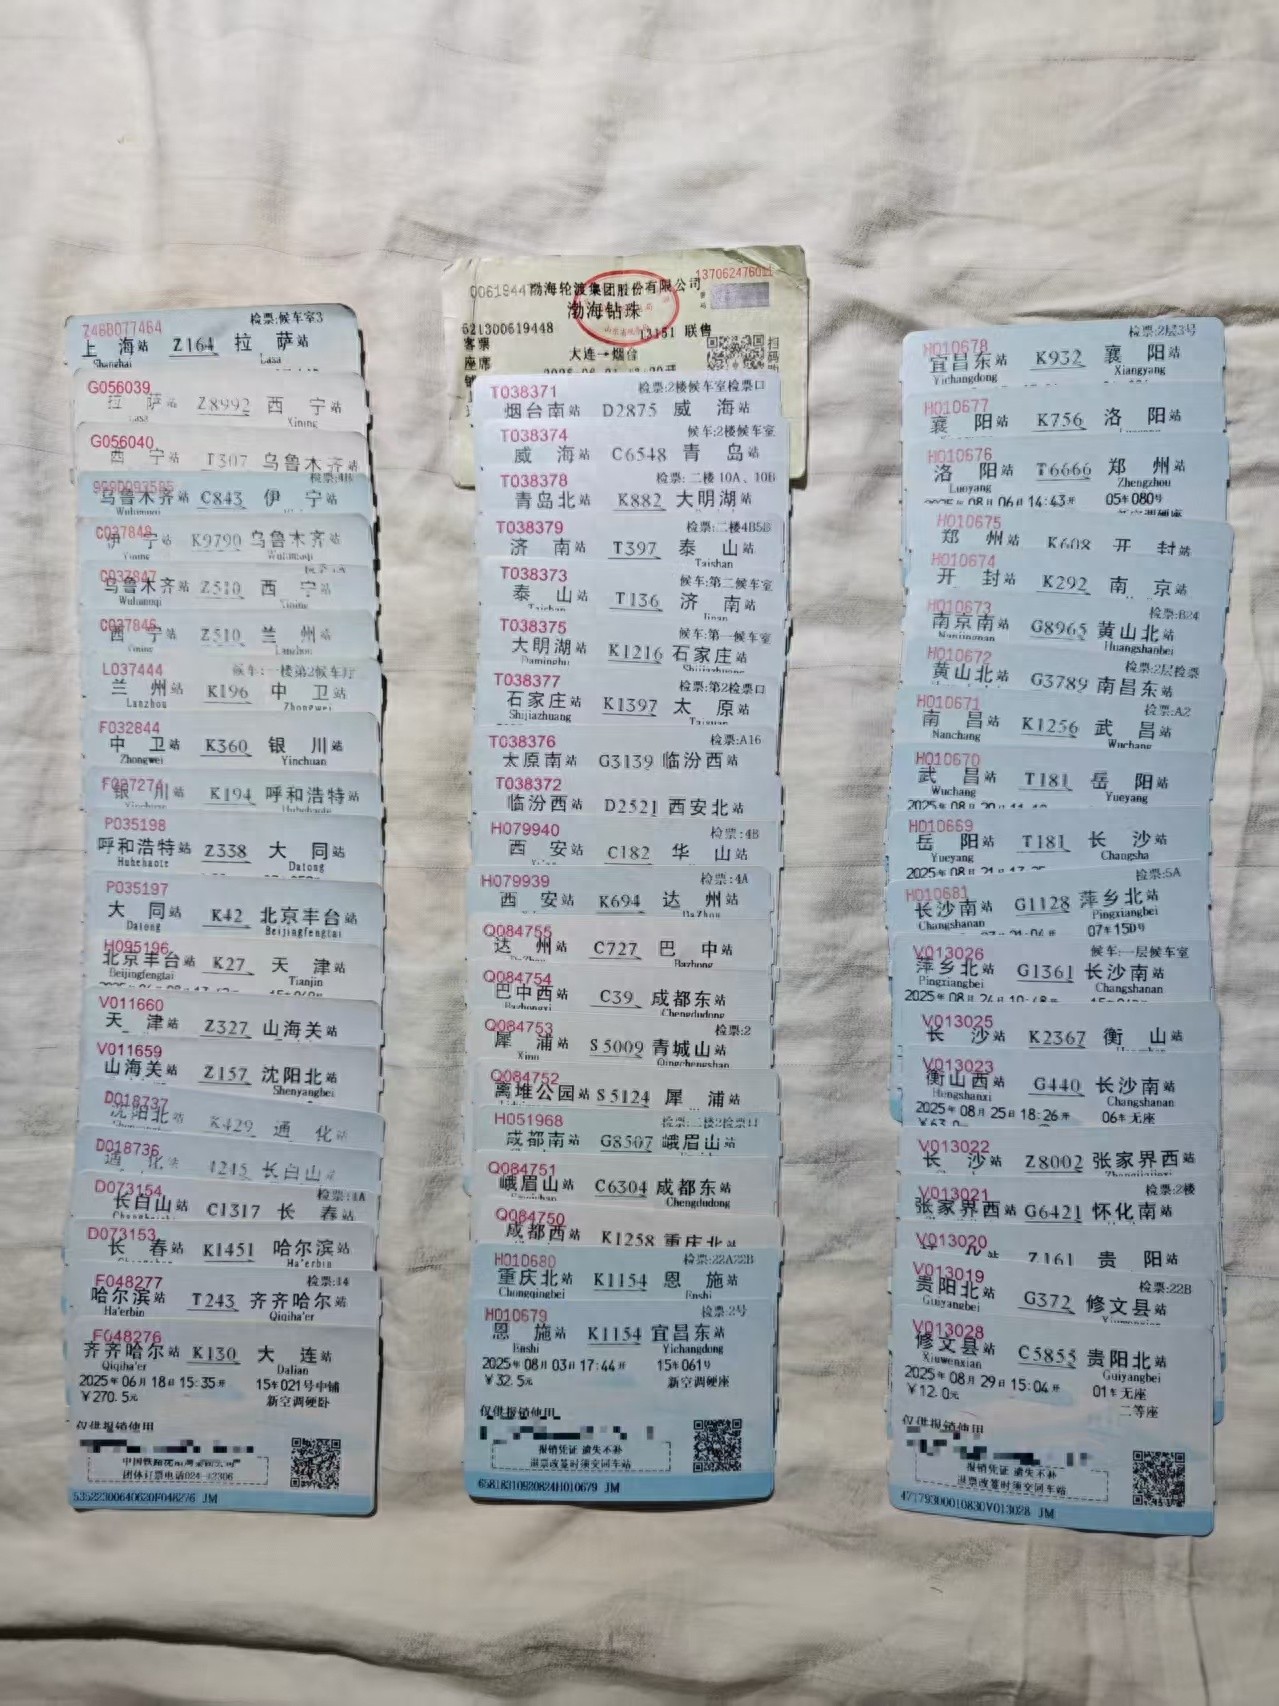 Z46B077464 检票:候车室3
上海站 Z164 拉萨站
Shanghai Lasa
G056039
拉萨站 Z8992 西宁站
Lasa Xining
G056040
西宁站 T307 乌鲁木齐站
乌鲁木齐站 C843 伊宁站
C037848
伊宁站 K9790 乌鲁木齐站
Yining Wulumuqi
C037847
乌鲁木齐站 Z510 西宁站
Wulumuqi Xining
C037846
西宁站 Z510 兰州站
Xining Lanzhou
L037444 候车:一楼第2候车厅
兰州站 K196 中卫站
Lanzhou Zhongwei
F032844
中卫站 K360 银川站
Zhongwei Yinchuan
F097274
银川站 K194 呼和浩特站
P035198
呼和浩特站 Z338 大同站
Huhehaote Datong
P035197
大同站 K42 北京丰台站
Datong Beijingfengtai
H095196
北京丰台站 K27 天津站
Beijingfengtai Tianjin
V011660
天津站 Z327 山海关站
V011659
山海关站 Z157 沈阳北站
Shenyangbei
D018737
沈阳北站 K429 通化站
D018736
通化站 4245 长白山站
D073154 检票:4A
长白山站 C1317 长春站
D073153
长春站 K1451 哈尔滨站
Ha'erbin
F048277 检票:14
哈尔滨站 T243 齐齐哈尔站
Ha'erbin Qiqiha'er
F048276
齐齐哈尔站 K130 大连站
Qiqiha'er Dalian
2025年06月18日15:35开 15车021号中铺
￥270.5元 新空调硬卧
仅供报销使用
团体订票电话024-12306
53522300640620F048276 JM
0061944 渤海轮渡集团股份有限公司 137062476011
渤海钻珠
621300619448 13151 联售
客票
座席 大连→烟台
T038371 检票:2楼候车室检票口
烟台南站 D2875 威海站
T038374 候车:2楼候车室
威海站 C6548 青岛站
T038378 检票:二楼10A、10B
青岛北站 K882 大明湖站
T038379 检票:二楼4B5B
济南站 T397 泰山站
Taishan
T038373 候车:第二候车室
泰山站 T136 济南站
Taishan Jinan
T038375 候车:第一候车室
大明湖站 K1216 石家庄站
Daminghu Shijiazhuang
T038377 检票:第2检票口
石家庄站 K1397 太原站
Shijiazhuang Taiyuan
T038376 检票:A16
太原南站 G3139 临汾西站
T038372
临汾西站 D2521 西安北站
H079940 检票:4B
西安站 C182 华山站
H079939 检票:4A
西安站 K694 达州站
DaZhou
Q084755
达州站 C727 巴中站
DaZhou Bazhong
Q084754
巴中西站 C39 成都东站
Bazhongxi Chengdudong
Q084753 检票:2
犀浦站 S5009 青城山站
Xipu Qingchengshan
Q084752
离堆公园站 S5124 犀浦站
H051968 检票:二楼2检票口
成都南站 G8507 峨眉山站
Q084751
峨眉山站 C6304 成都东站
Chengdudong
Q084750
成都西站 K1258 重庆北站
H010680 检票:22A22B
重庆北站 K1154 恩施站
Chongqingbei Enshi
H010679 检票:2号
恩施站 K1154 宜昌东站
Enshi Yichangdong
2025年08月03日17:44开 15车061号
￥32.5元 新空调硬座
仅供报销使用
报销凭证 遗失不补
退票改签时须交回车站
65818310920824H010679 JM
H010678 检票:2层3号
宜昌东站 K932 襄阳站
Yichangdong Xiangyang
H010677
襄阳站 K756 洛阳站
H010676
洛阳站 T6666 郑州站
Luoyang Zhengzhou
2025年08月06日14:43开 05车080号
H010675
郑州站 K608 开封站
H010674
开封站 K292 南京站
H010673 检票:B24
南京南站 G8965 黄山北站
Nanjingnan Huangshanbei
H010672 检票:2层检票
黄山北站 G3789 南昌东站
H010671 检票:A2
南昌站 K1256 武昌站
Nanchang Wuchang
H010670
武昌站 T181 岳阳站
Wuchang Yueyang
H010669
岳阳站 T181 长沙站
Yueyang Changsha
H010681 检票:5A
长沙南站 G1128 萍乡北站
Changshanan Pingxiangbei
07车15D号
V013026 候车:一层候车室
萍乡北站 G1361 长沙南站
Pingxiangbei Changshanan
V013025
长沙站 K2367 衡山站
V013023
衡山西站 G440 长沙南站
Hengshanxi Changshanan
2025年08月25日18:26开 06车无座
V013022
长沙站 Z8002 张家界西站
Zhangjiajiexi
V013021 检票:2楼
张家界西站 G6421 怀化南站
V013020
Z161 贵阳站
V013019 检票:22B
贵阳北站 G372 修文县站
Guiyangbei Xiuwenxian
V013028
修文县站 C5855 贵阳北站
Xiuwenxian Guiyangbei
2025年08月29日15:04开 01车无座
￥12.0元 二等座
仅供报销使用
报销凭证 遗失不补
退票改签时须交回车站
47179300010830V013028 JM